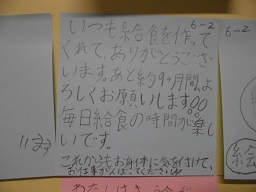 6-2
いつも給食を作って
くれて、ありがとうござ
います。あと約9ヶ月間、よ
ろしくお願いします。
毎日給食の時間が楽し
いです。
これからもお身体に気を付けて、
お仕事がんばってください。
6-2
絵